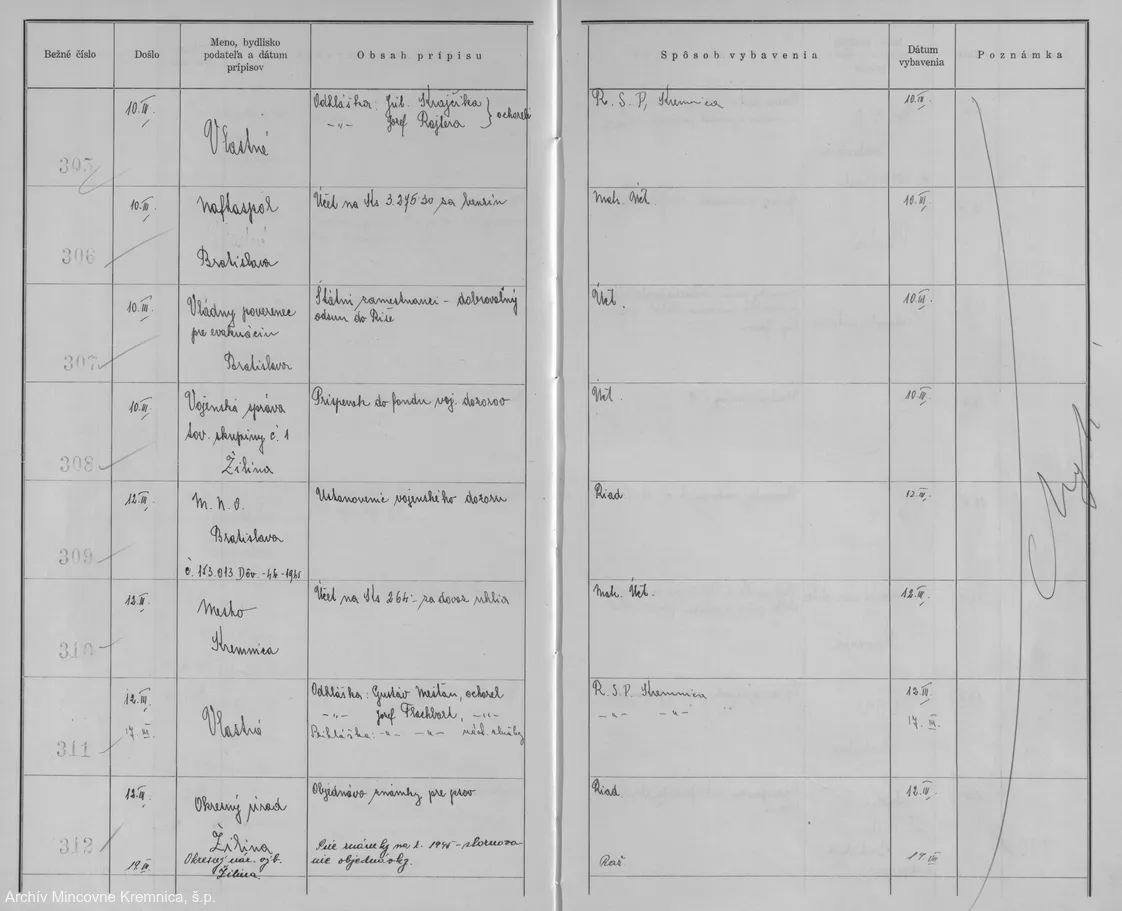 Bežné číslo
Došlo
Meno, bydlisko
podateľa a dátum
prípisov
Obsah prípisu
Spôsob vybavenia
Dátum
vybavenia
Poznámka
305
10.III.
Vlastné
Odhláška: Júl. Krajčírka } ochoreli
-„- Jozef Rajtera
R. S. P, Kremnica
10.III.
306
10.III.
Naftaspol
Bratislava
Účet na Ks 3.275·30 za benzín
Mah. Účt.
10.III.
307
10.III.
Vládny poverenec
pre evakuáciu
Bratislava
Štátni zamestnanci - dobrovoľný
odsun do Ríše
Účt.
10.III.
308
10.III.
Vojenská správa
tov. skupiny č. 1
Žilina
Príspevok do fondu voj. dozorov
Účt.
10.III.
309
12.III.
M. N. O.
Bratislava
č. 153.013 Dôv. -44-1945
Ustanovenie vojenského dozoru
Riad.
12.III.
310
12.III.
Mesto
Kremnica
Účet na Ks 264·- za dovoz uhlia
Mah. Účt.
12.III.
311
12.III.
17. III.
Vlastné
Odhláška: Gustáv Meštan, ochorel
-„- Jozef Flachbart, -„-
Prihláška: -„- -„- nást. služby
R. S. P. Kremnica
-„- -„-
12.III.
17. III.
312
12.III.
Okresný úrad
Žilina
Objednávo známky pre psov
Riad.
12.III.
19.III.
Okresný nár. výb.
Žilina
Psie známky na r. 1945 - stornova-
nie objednávky.
Raž
19.III
Archív Mincovne Kremnica, š.p.